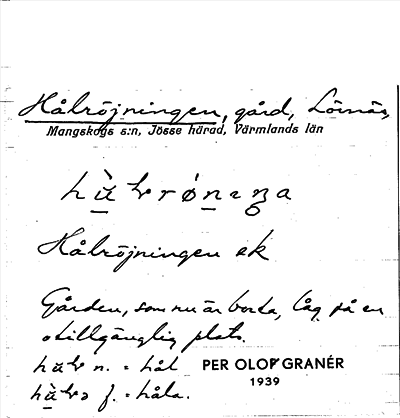 Hålröjningen, gård, Lönnäs,
Mangskogs s:n, Jösse härad, Värmlands län
Hålröjningen ek
Gården, som nu är borta, låg på en
otillgänglig plats.
n. = hål PER OLOF GRANÉR
1939
f. = håla.